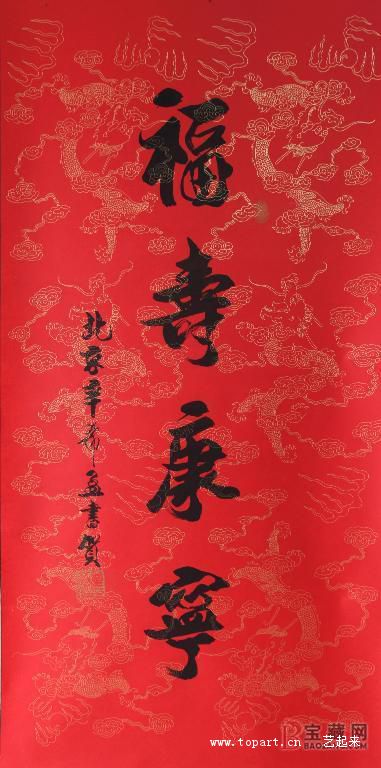 福壽康寧
北京辛希孟書賀
宝藏网
www.topart.cn 艺起来